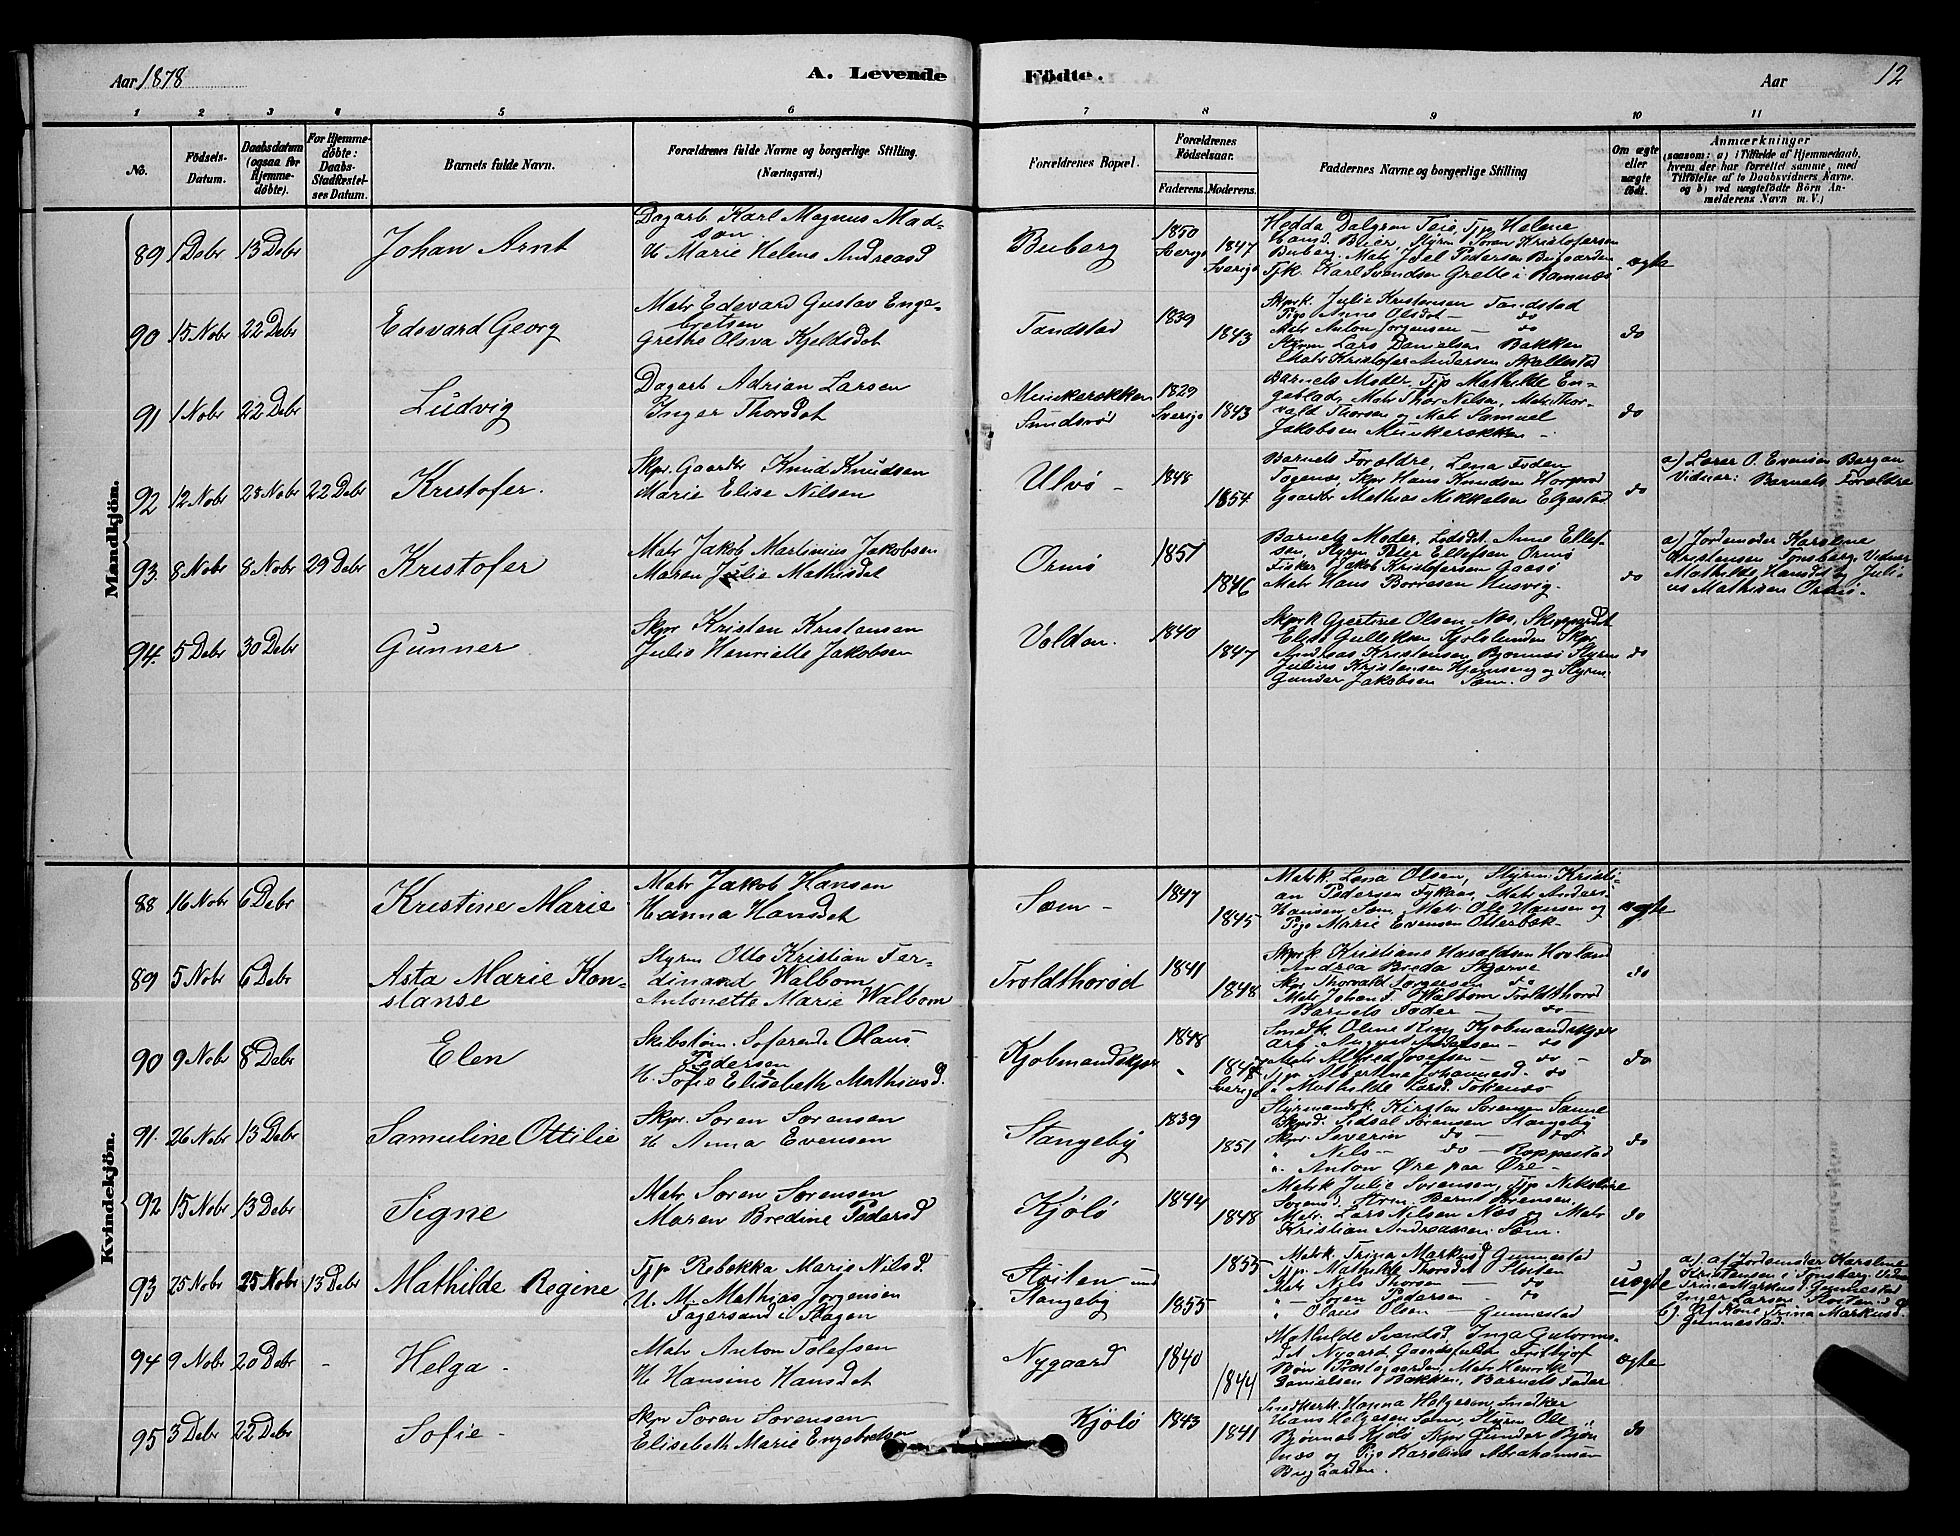 Aar 1878
A. Levende
Födte.
Aar
12
1 2 3 4 5 6 7 8 9 10 11
No.
Födsels-
Datum.
Daabsdatum
(ogsaa for
Hjemme-
døbte).
For Hjemme-
døbte:
Daabs-
Stadfæstel-
ses Datum.
Barnets fulde Navn.
Forældrenes fulde Navne og borgerlige Stilling.
(Næringsvei.)
Forældrenes Bopæl.
Forældrenes
Födselsaar.
Faderens. Moderens.
Faddernes Navne og borgerlige Stilling
Om ægte
eller
uægte
født.
Anmærkninger
(saasom: a) i Tilfælde af Hjemmedaab,
hvem der har forrettet samme, med
Tilföielse af to Daabsvidners Navne.
og b) ved uægtefödte Börn An-
melderens Navn m. V.)
Mandkjön.
89 1 Debr 13 Debr
Johan Arnt
Dagarb Karl Magnus Mad-
son
H. Marie Helene Andreasd
Buberg
1850
Sverige
1847
Sverige
Hedda Dalgren Teie, Tjp Helene
Hansd. Blier, Styrm Soren Kristofersen
Buberg. Matr Joel Pedersen Bugaarden
Tjk. Karl Svendsen Grette i Ramnæs
ægte
90 15 Nobr 22 Debr
Edevard Georg
Matr Edevard Gustav Enge-
bretsen
Grethe Olava Kjeldsdet
Tandstad
1839
1843
Skprk. Julie Kristensen Tandstad
Pige Anne Olsdet - do
Matr Anton Jorgensen - do
Styrm Lars Danielsen Bakken
Matr Kristofer Andersen Skallestad
do
91 1 Nobr 22 Debr
Ludvig
Dagarb Adrian Larsen
Inger Thorsdet
Munkerekken
Sundsrød
1829
Sverige
1843
Barnets Moder, Tjp Mathilde En-
geblad, Matr Thor Nilsen, Matr Thor-
vald Thorsen og Matr Samuel
Jakobsen Munkerekken -
do
92 12 Nobr 28 Nobr 22 Debr
Kristofer.
Skpr. Gaardbr Knud Knudsen
Marie Elise Nilsen
Ulvø -
1848
1854
Barnets Forældre, Lena Foden
Togenæs, Skpr Hans Knudsen
Gaardbr Mathias Mikkelsen Elgestad
do
a) Lærer O. Evensen Bergan
Vidner: Barnets Forældre
93. 8 Nobr 8 Nobr 29 Debr
Kristofer
Matr Jakob Martinius Jakobsen
Maren Julie Mathisdet
Ormø
1851
1846
Barnets Moder, Lodsdt. Anne Ellef-
sen, Styrm Peter Ellefsen Ormø
Fisker Jakob Kristofersen Gaasø
Matr Hans Borresen Husvig.
do
a) Jordemoder Karoline
Kristensen Tønsberg. Vidner
Mathilde Hansdt og Juli-
us Mathisen Ormø.
94. 5 Debr 30 Debr
Gunner
Skpr Kristen Kristensen
Julie Henriette Jakobsen
Volden.
1840
1847
Skprk Gjertine Olsen Nes,
Elise Gulliksen Skpr
Andreas Kristensen, Bjonnes Styrm
Julius Kristensen Hjemseng og Styrm
Gunder Jakobsen Sem.
do
Kvindekjön.
88 16 Nobr 6 Debr
Kristine Marie
Matr Jakob Hansen
Hanna Hansdet
Sæm -
1847
1845
Matrk. Lena Olsen, Styrm: Kristi-
an Pedersen Fykaas, Matr Anders
Hansen Sæm, Matr Ole Hansen og
Pige Marie Evensen Otterbæk -
ægte
89 5 Nobr 6 Debr
Asta Marie Kon-
stanse
Styrm Otto Kristian Fer-
dinand Walbom
Antonette Marie Walbom
Troldthorød
1841
1848
Skprk. Kristiane Haraldsen Hovland
Andrea Breda Skjerve
Skpr Thorvald Torgersen do
Matr Johan F. Walbom Troldthorød
Barnets Fader - do -
do
90 9 Nobr 8 Debr
Elen
Skibstøm. Søfarende Olaus
Pedersen
H. Sofie Elisabeth Mathiasd.
Kjobmandskjær
1848
Sverige
Smedk. Oline King Kjobmandskjær
Arb. August Andersen - do
Matr Alfred Josefsen - do -
Tjp Albertine Johannesd. do
" Mathilde Larsd. Tokenæs
do
91. 26 Nobr 13 Debr
Samuline Ottilie
Skpr. Soren Sorensen
H. Anna Evensen
Stangeby
1839
1851
Styrmandsk. Kirsten Sorensen Sanne
Skprd. Sidsel Sorensen Stangeby
Skpr. Severin do - do
" Nils - do - Roppestad
" Anton Øre paa Øre -
do
92 15 Nobr 13 Debr
Signe
Matr Soren Sorensen
Maren Bredine Pedersd
Kjølø
1844
1848
Matrk Julie Sorensen, Tjp Nikoline
Sorensd. Strm. Barnt Sorensen,
Matr. Lars Nilsen Nes og Matr
Kristian Andreassen Sæm.
do
93 25 Nobr 25 Nobr 13 Debr
Mathilde Regine
Tjp Rebekka Marie Nilsd.
U. M. Mathias Jorgensen
Fagersand i Skagen
Stoiten und
Stangeby
1855
1855
Matrk. Trina Markusd Gunnestad
Tjp. Mathilde Thorsdet Stoiten
Matr Nils Thorsen - do
" - Soren Pedersen - do
" Olaus Olsen - Gunnestad
uægte
a) af Jordemoder Karoline
Kristensen i Tønsberg. Vidner
Trina Markusd Gunnestad
Inger Larsen Stoiten
b) Af Kone Trina Markusd.
Gunnestad.
94 9 Nobr 20 Debr -
Helga -
Matr Anton Tolefsen
H. Hansine Hansdet
Nygaard
1840
1844
Mathilde Svendsd, Inga Gutorms-
det Nygaard, Gaardsfuldm Frithjof
Bøn Præstegaarden, Matr Henrik
Danielsen Bakken, Barnets Fader
ægte
95 3 Debr 22 Debr
Sofie -
Skpr Soren Sorensen
Elisabeth Marie Engebretsen
Kjölö
1843
1841
Smedkerk. Hanna Holgersen, Smedker
Hans Holgersen Sem, Styrm Ole
Bjönnes Kjölö Skpr Gunder Bjön
næs og Pige Karoline Abrahamsen
Bugaarden.
do